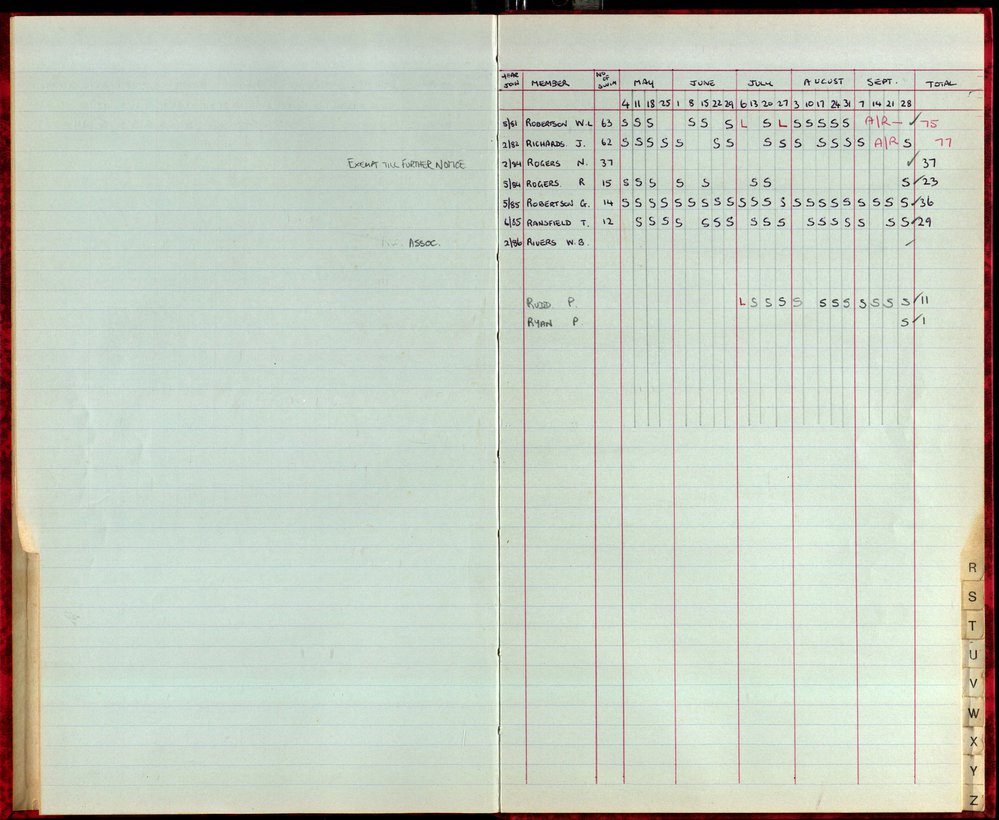 YEAR JOIN MEMBER NO OF SWIM MAY JUNE JULY AUGUST SEPT. TOTAL
4 11 18 25 1 8 15 22 29 6 13 20 27 3 10 17 24 31 7 14 21 28
5/81 ROBERTSON W.L 63 S S S S S S L S L S S S S S A/R — ✓ 75
2/82 RICHARDS J. 62 S S S S S S S S S S S S S S S A/R S 77
EXEMPT TILL FURTHER NOTICE 2/84 ROGERS N. 37 ✓ 37
5/84 ROGERS R 15 S S S S S S S S ✓ 23
5/85 ROBERTSON G. 14 S S S S S S S S S S S S S S S S S S S S S S ✓ 36
6/85 RANSFIELD T. 12 S S S S S S S S S S S S S S S S S ✓ 29
ASSOC. 2/86 RIVERS W.B. ✓
RUDD P. L S S S S S S S S S S S ✓ 11
RYAN P. S ✓ 1
R
S
T
U
V
W
X
Y
Z